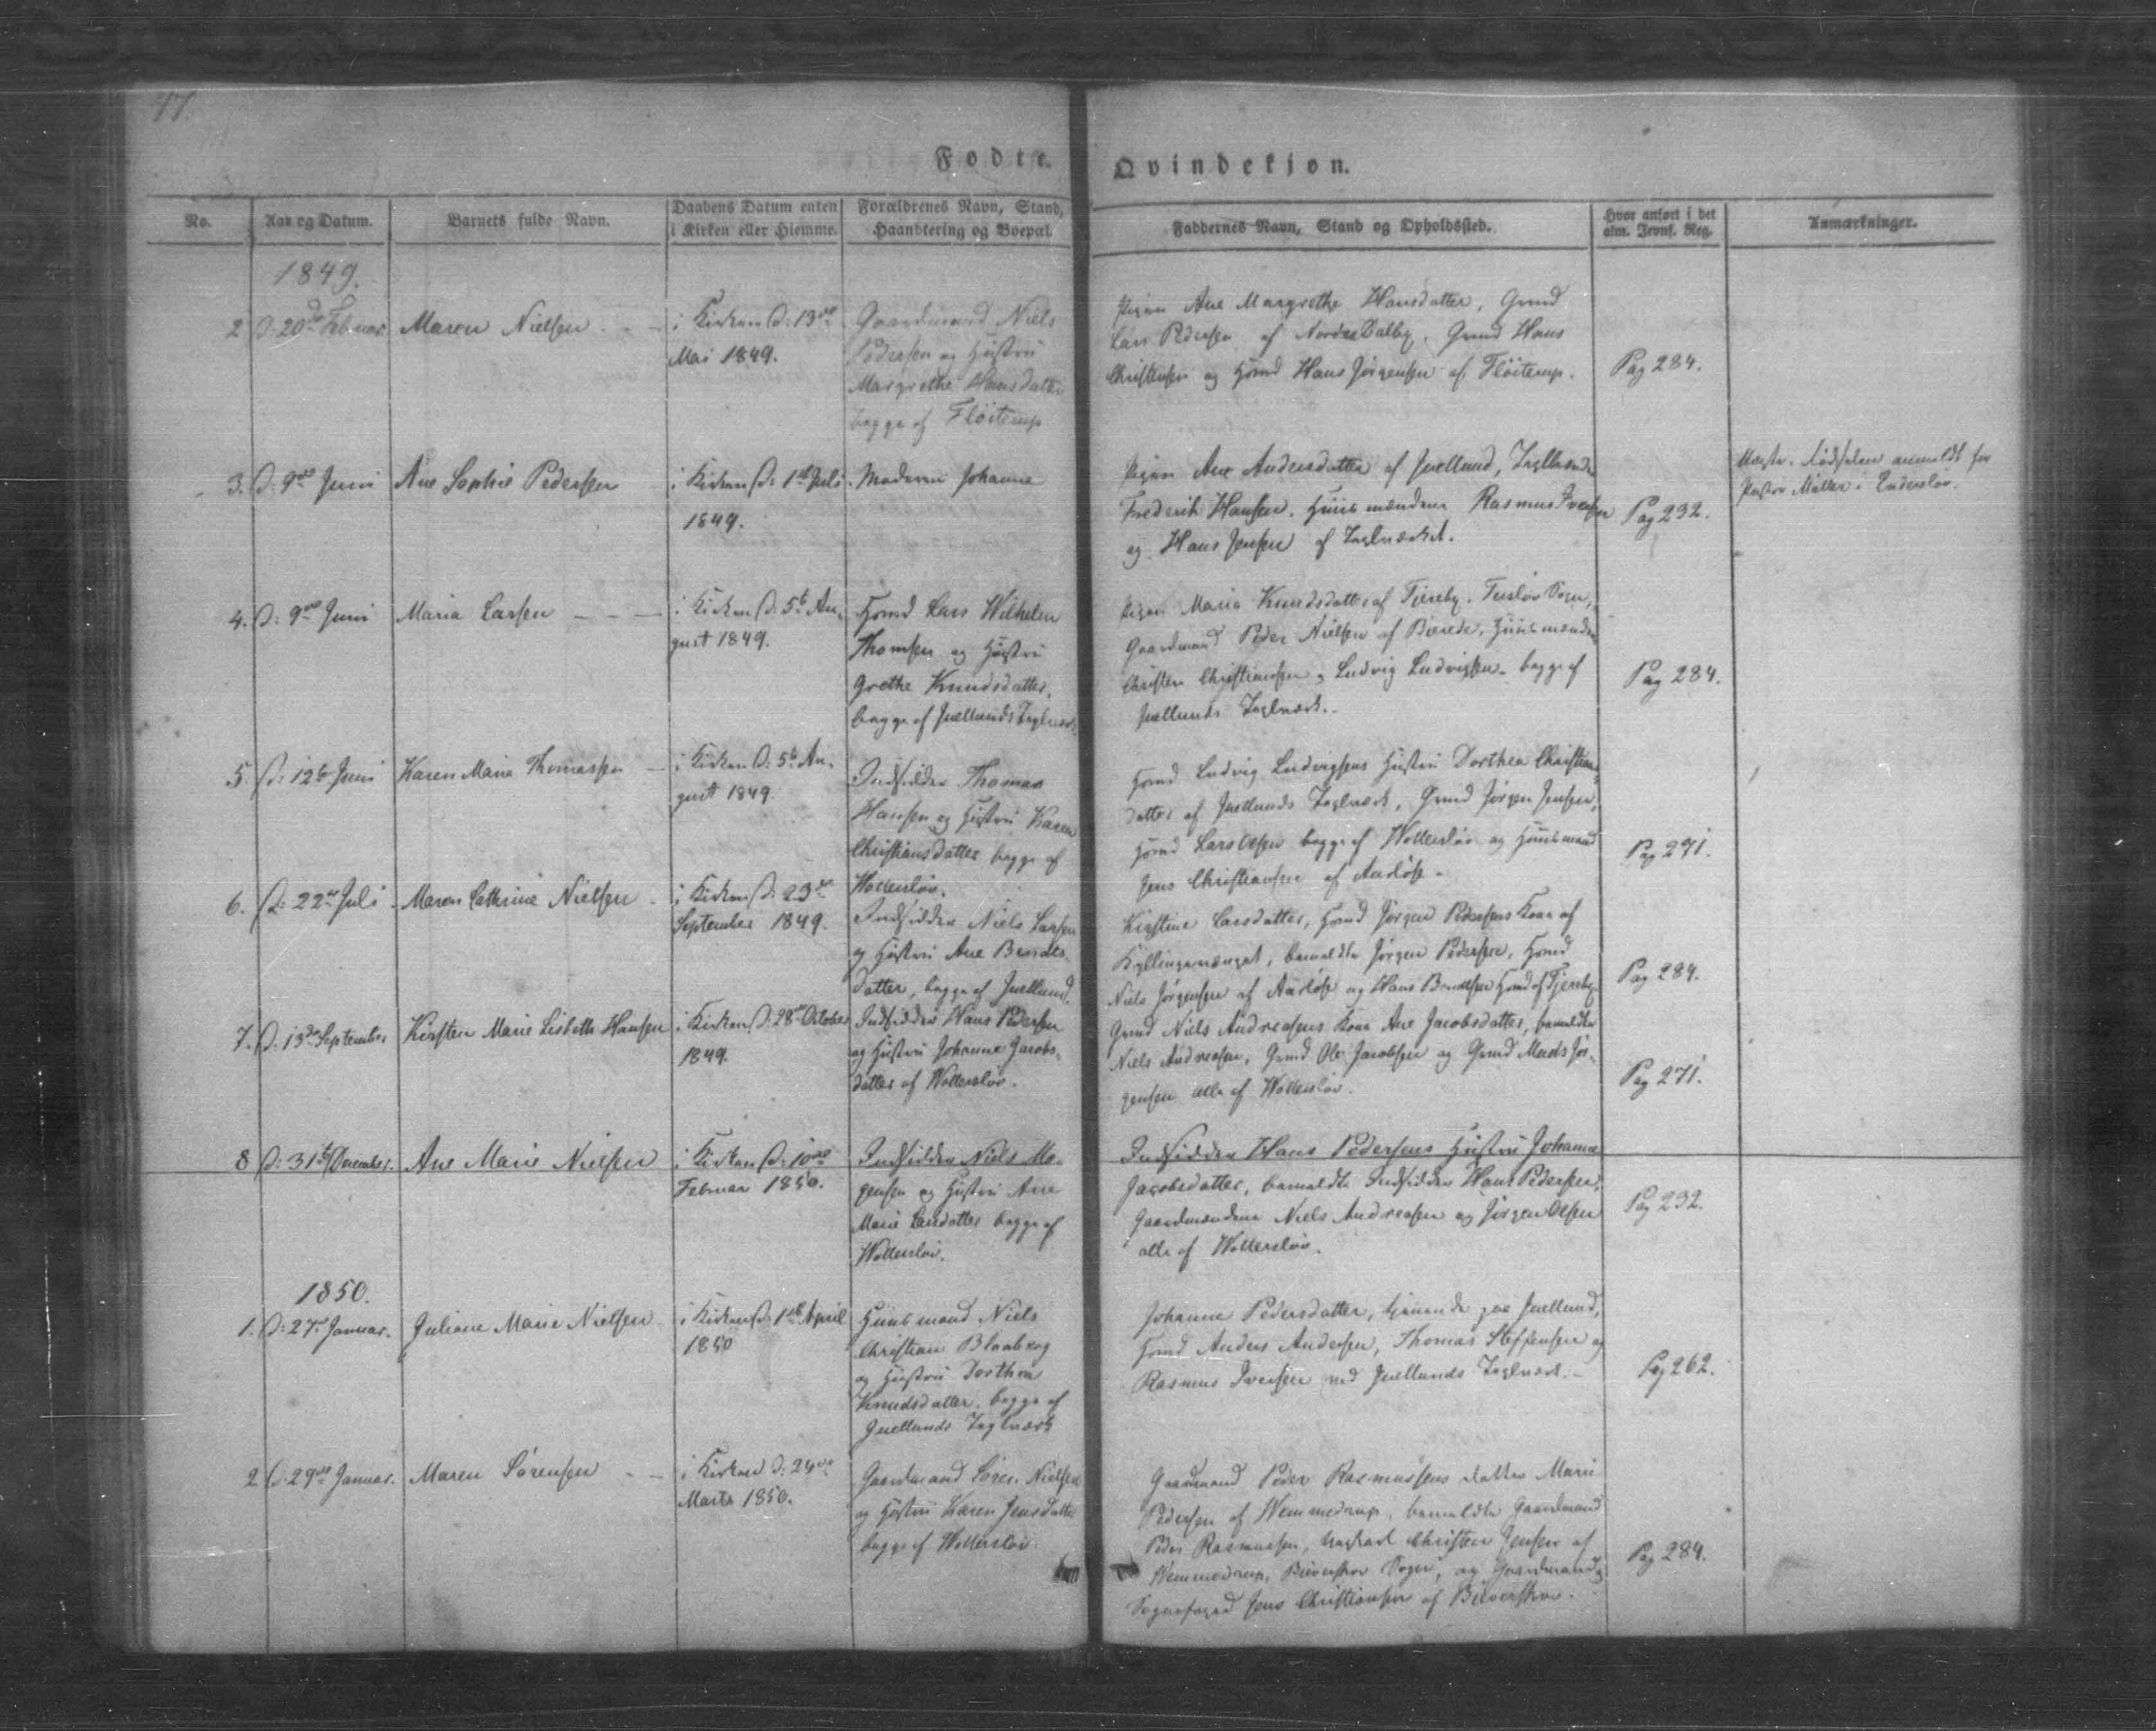 Fødte Qvindekjøn.
No.
Aar og Datum.
Barnets fulde Navn.
Daabens Datum enten
i Kirken eller Hjemme.
Forældrenes Navn, Stand,
Haandtering og Boepæl.
Faddernes Navn, Stand og Opholdssted.
Hvor anført i det
alm. Jevnf. Reg.
Anmærkninger.
1849.
2
d: 20de Februar
Maren Nielsen
i Kirken d: 13de
Mai 1849.
Gaardmand Niels
Pedersen og Hustru
Margrethe Hansdatter
begge af Fløiterup
Pigen Ane Margrethe Hansdatter, Grmd
Lars Pedersen af Nordre Dalby, Grmd Hans
Christensen og Hmd Hans Jørgensen af Fløiterup.
Pag 284.
3.
d: 9de Juni
Ane Sophie Pedersen
i Kirken d: 1ste Juli
1849.
Moderen Johanne
Pigen Ane Andersdatter af Juellund,
Frederik Hansen, Huusmændene Rasmus Iversen
og Hans Jensen af Teglværket.
Pag 232.
Fødselen anmeldt for
Pastor Müller i Enderslev.
4.
d: 9de Juni
Maria Larsen
i Kirken d: 5te Au-
gust 1849.
Hmd Lars Wilhelm
Thomsen og Hustru
Grethe Knudsdatter,
begge af Juellunds Teglværk
Pigen Maria Knudsdatter af Tjereby, Sogn,
Gaardmand Peder Nielsen af Bierede, Huusmændene
Christen Christiansen og Ludvig Ludvigsen begge af
Juellunds Teglværk.
Pag 284.
5.
d: 12te Juni
Karen Marie Thomassen
i Kirken d: 5te Au-
gust 1849.
Indsidder Thomas
Hansen og Hustru Karen
Christiansdatter begge af
Wollerslev.
Hmd Ludvig Ludvigsens Hustru Dorthea Christians-
datter af Juellunds Teglværk, Grmd Jørgen Jensen,
Hmd Lars Olsen begge af Wollerslev og Huusmand
Jens Christiansen af Aarløse
Pag 271.
6.
d: 22de Juli
Maren Cathrine Nielsen
i Kirken d: 23de
September 1849.
Indsidder Niels Larsen
og Hustru Ane Bendts-
datter, begge af Juellund.
Kirstine Larsdatter, Hmd Jørgen Pedersens Kone af
Kyllingevænget, bemeldte Jørgen Pedersen, Hmd
Niels Jørgensen af Aarløse og Hans Bendtsen Hmd af Tjereby
Pag 284.
7.
d: 13de September
Kirsten Marie Lisbeth Hansen
i Kirken d: 28de October
1849.
Indsidder Hans Pedersen
og Hustru Johanne Jacobs-
datter af Wollerslev.
Grmd Niels Andreasens Kone Ane Jacobsdatter, bemeldte
Niels Andreasen, Grmd Ole Jacobsen og Grmd Mads Jør-
gensen alle af Wollerslev.
Pag 271.
8
d: 31te December.
Ane Marie Nielsen
i Kirken d: 10de
Februar 1850.
Indsidder Niels Mo-
gensen og Hustru Ane
Marie Larsdatter begge af
Wollerslev.
Indsidder Hans Pedersens Hustru Johanne
Jacobsdatter, bemeldte Indsidder Hans Pedersen,
Gaardmændene Niels Andreasen og Jørgen Olsen
alle af Wollerslev.
Pag 232.
1850.
1.
d: 27de Januar.
Juliane Marie Nielsen
i Kirken d: 1ste April
1850
Huusmand Niels
Christian Blaabjerg
og Hustru Dorthea
Knudsdatter, begge af
Juellunds Teglværk
Johanne Pedersdatter, tjenende paa Juellund,
Hmd Anders Andersen, Thomas Steffensen og
Rasmus Iversen ved Juellunds Teglværk.
Pag 262.
2
d: 29de Januar.
Maren Sørensen
i Kirken d: 24de
Marts 1850.
Gaardmand Søren Nielsen
og Hustru Karen Jensdatter
begge af Wollerslev.
Gaardmand Peder Rasmussens Datter Marie
Pedersen af Wemmedrup, bemeldte Gaardmand
Peder Rasmussen, Ungkarl Christen Jensen af
Wemmedrup, Bieverskov Sogn, og Gaardmand og
Sognefoged Jens Christiansen af Bieverskov.
Pag 284.